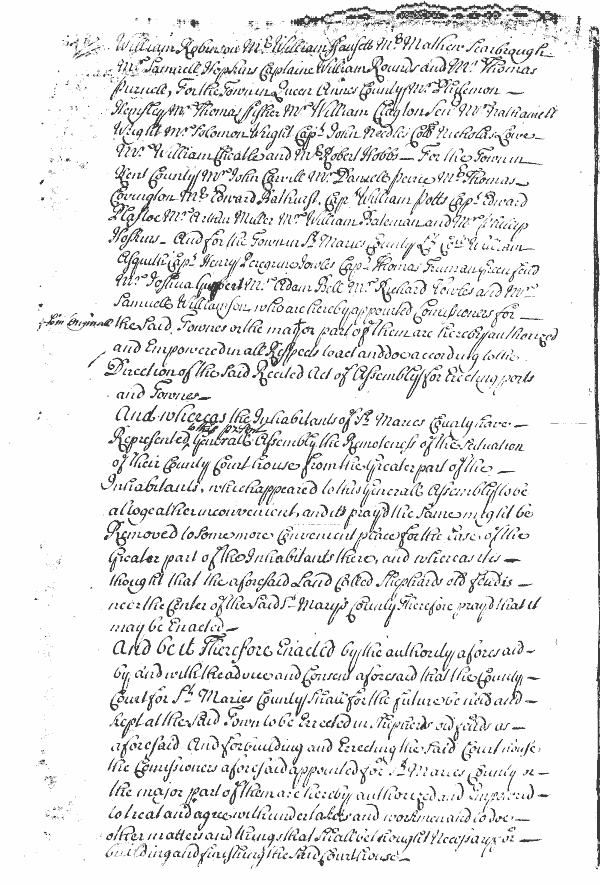 William Robinson Mr. William Hausett Mr. Mathew Scarbrough
Mr. Samuell Hopkins Captaine William Rounds and Mr. Thomas
Purnell, For the Town in Queen Annes County Mr. Philemon —
Hemsley Mr. Thomas Fisher Mr. William Clayton Senr. Mr. Nathaniell
Wright Mr. Solomon Wright Capt. John Needles Coll. Nicholas Lowe —
Mr. William Cheatle and Mr. Robert Hobbs — For the Town in
Kent County Mr. John Carvill Mr. Daniell Peirce Mr. Thomas —
Covington Mr. Edward Bathurst, Capt. William Potts Capt. Edward
Plastoe Mr. Arthur Miller Mr. William Bateman and Mr. Philip
Hoskins — And for the Town in St. Maries County William
Asquith Capt. Henry Peregrine Jowles Capt. Thomas Truman Greenfield
Mr. Joshua Mr. Adam Bell Mr. Richard and Mr.
Samuell Williamson, who are hereby appointed Comissioners for —
the said Townes or the major part of them are hereby authorized
and Empowered in all Respects to act and doe according to the
Direction of the said Recited Act of Assembly for Erecting ports
and Townes —
And whereas the Inhabitants of St. Maries County have —
to this present
Represented Generall Assembly the Remoteness of the Situation
of their County Court house from the Greater part of the —
Inhabitants, which appeared to this Generall Assembly to be
altogeather inconvenient, and its pray'd the same might be
Removed to some more Convenient place for the Ease of the
Greater part of the Inhabitants there, and whereas its —
thought that the aforesaid Land Called Shepherds old feilds —
neer the Center of the said St. Mary's County Therefore pray'd that it
may be Enacted —
And be it Therefore Enacted by the authority aforesaid —
by and with the advice and Consent aforesaid that the County —
Court for St. Maries County Shall for the future be held and —
kept at the said Town to be Errected in Shepherds old feilds as —
aforesaid And for building and Errecting the said Court house
the Comissioners aforesaid appointed for St. Maries County or —
the major part of them are hereby authorized and Impowered —
to treat and agree with undertakers and workmen and to doe —
other matters and things that shall be thought Necessary for —
building and finishing the said Courthouse —